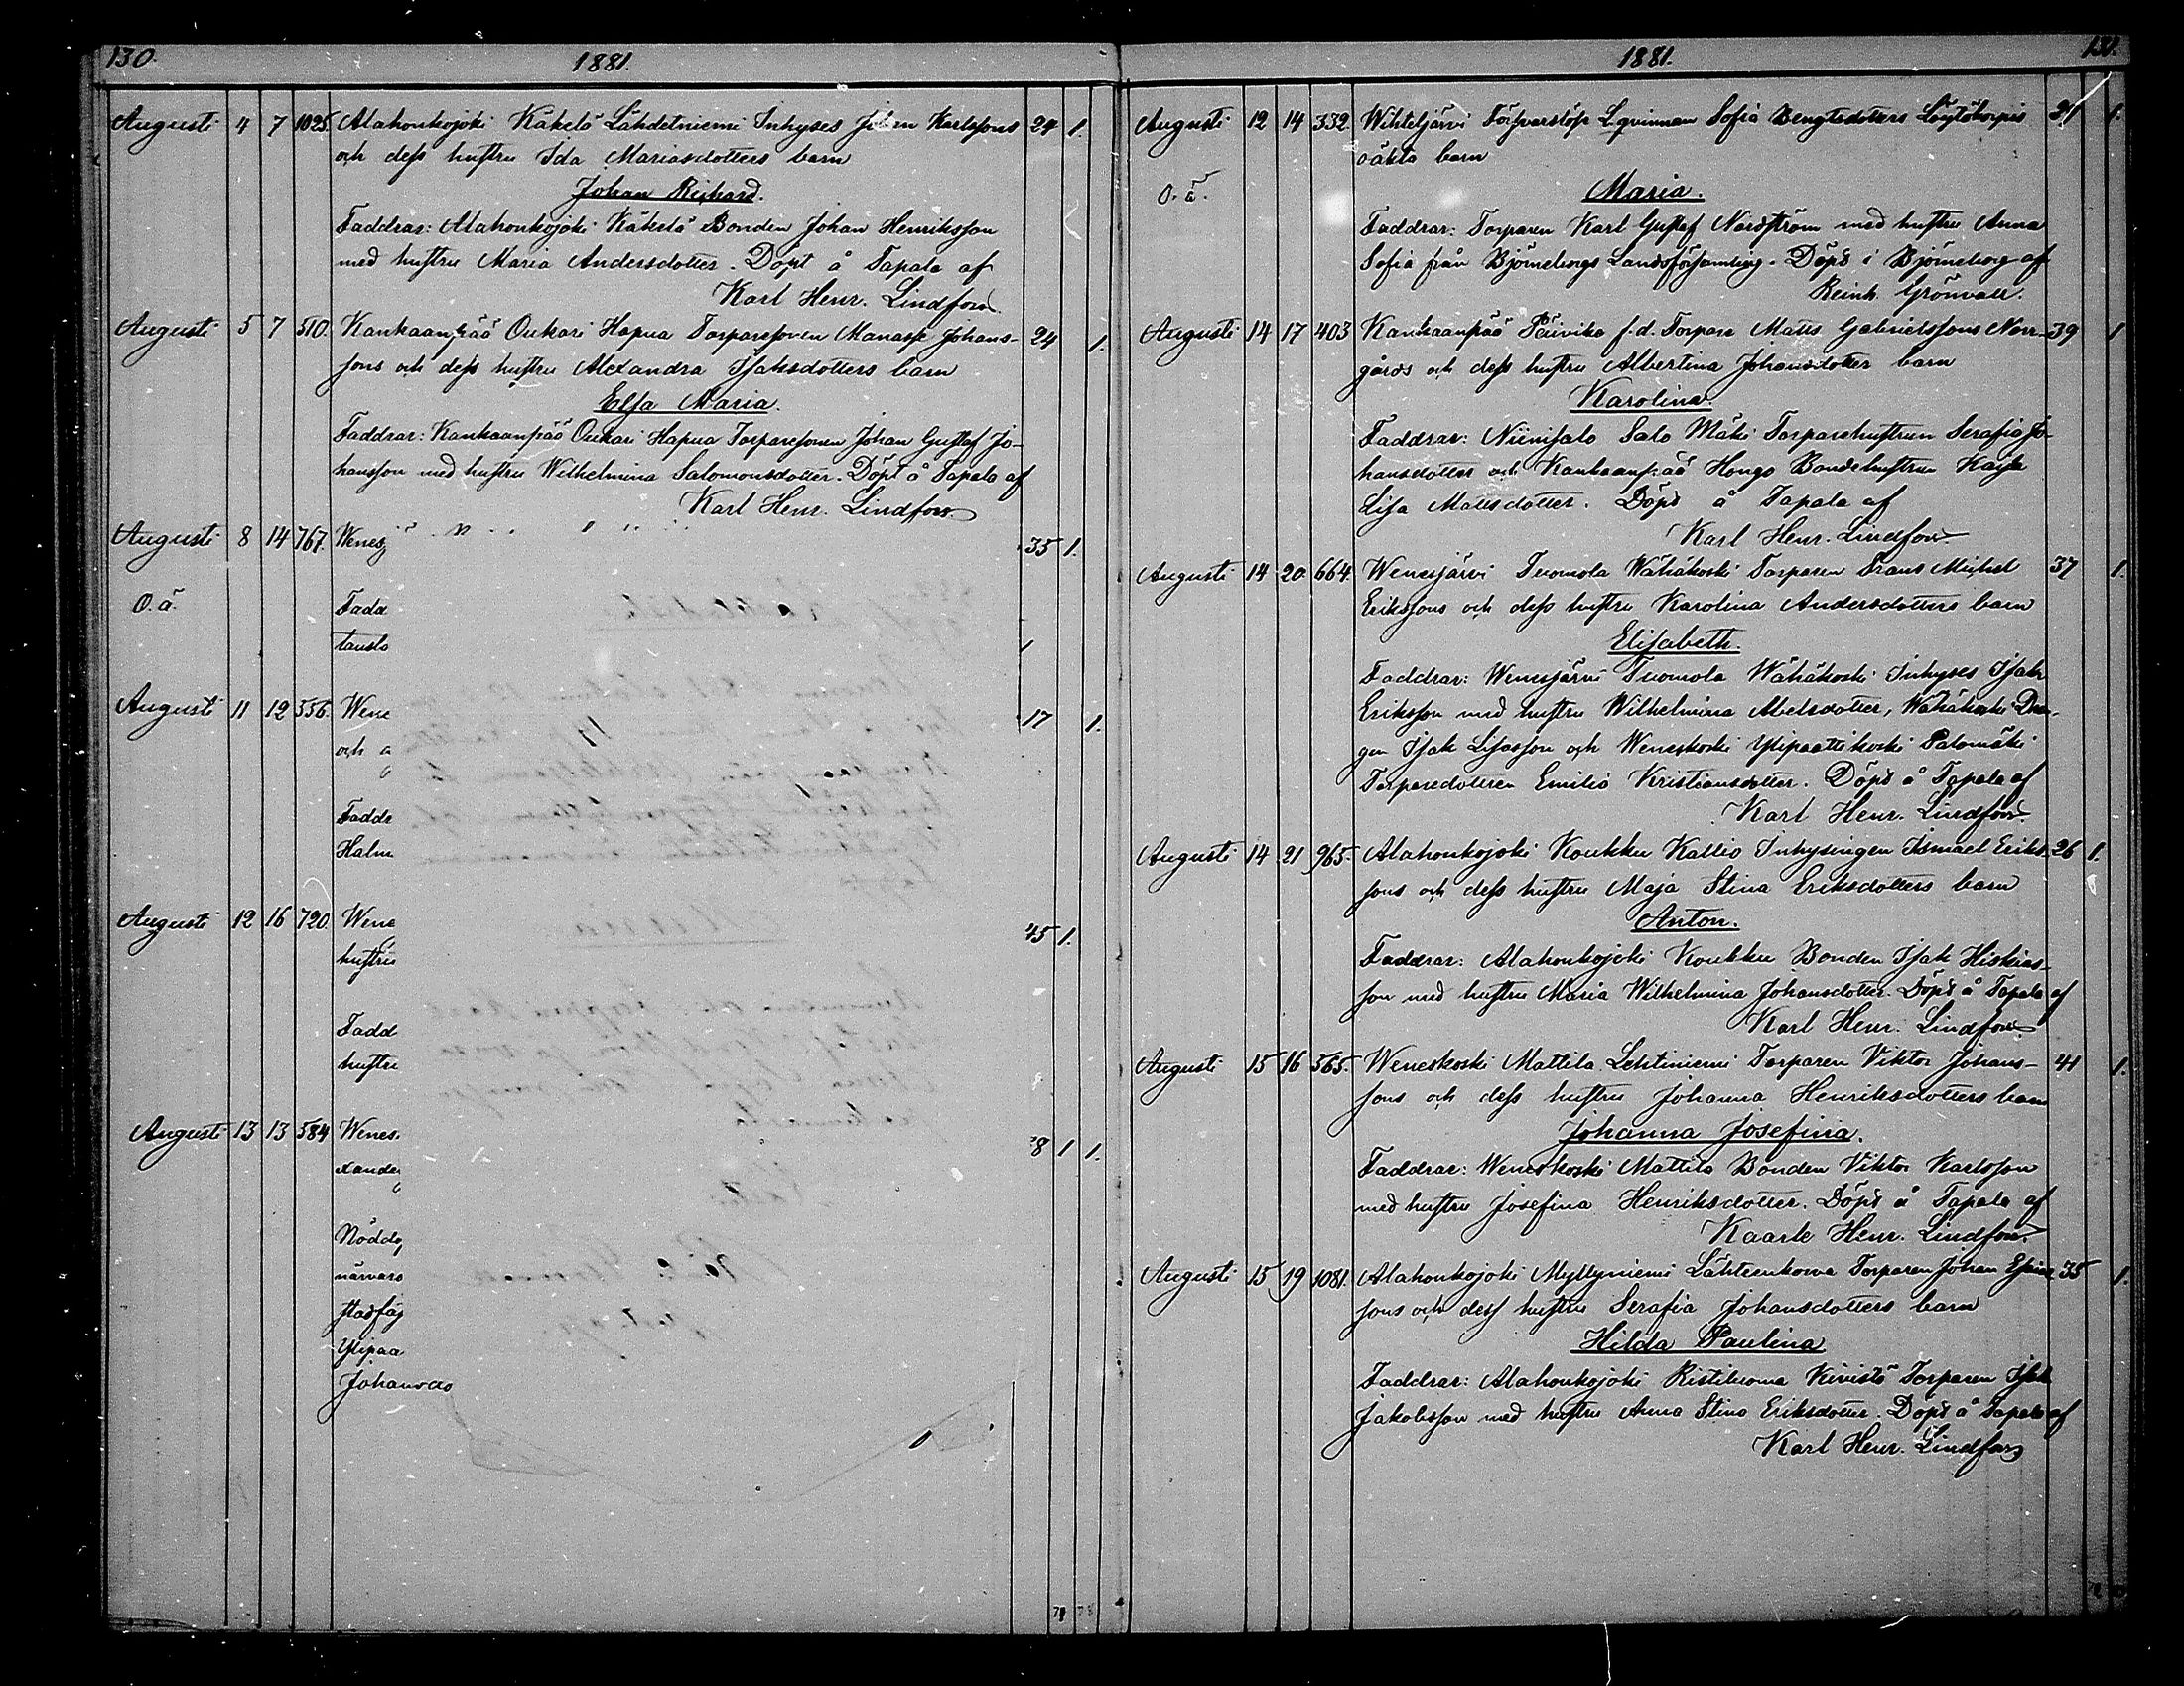 130. 1881.
Augusti 4 7 1025. Alahonkojoki Käkelä Lähdetniemi Inhyses Johan Karlssons 24 1.
och dess hustru Ida Mariasdotters barn
Johan Richard.
Faddrar: Alahonkojoki Käkelä Bonden Johan Henriksson
med hustru Maria Andersdotter. Döpt å Tapala af
Karl Henr. Lindfors
Augusti 5 7 510. Kankaanpää Oukari Hapua Torparesonen Manasse Johans- 24 1.
sons och dess hustru Alexandra Isaksdotters barn
Elsa Maria.
Faddrar: Kankaanpää Oukari Hapua Torparesonen Johan Gustaf Jo-
hansson med hustru Wilhelmina Salomonsdotter. Döpt å Tapala af
Karl Henr. Lindfors
Augusti 8 14 767. Wenesj 35 1.
O.ä. Fadd
tausta
Augusti 11 12 556. Wene 17 1.
och
Faddr
Halm
Augusti 12 16 720. Wene 45 1.
hustru
Fadd
hustru
Augusti 13 13 584 Wenes 38 1 1.
xander
Nöddö
närvaro
stadfäs
Ylipaa
Johansdo
1881. 131.
Augusti 12 14 332. Wihteljärvi Försvarslösa Lqvinnan Sofia Bengtsdotters Löytökorpis 31 1.
oäkta barn
O.ä. Maria.
Faddrar: Torparen Karl Gustaf Nordström med hustru Anna
Sofia från Björneborgs Landsförsamling. Döpt i Björneborg af
Reinh. Grönvall.
Augusti 14 17 403 Kankaanpää Päivike f.d. Torpare Matts Gabrielssons Norr- 39 1
gårds och dess hustru Albertina Johansdotter barn
Karolina.
Faddrar: Niinisalo Salo Mäki Torparehustrun Serafia Jo-
hansdotter och Kankaanpää Hongo Bondehustrun Kajsa
Lisa Mattsdotter. Döpt å Tapala af
Karl Henr. Lindfors
Augusti 14 20 664. Wenesjärvi Tuomola Wähäkoski Torparen Frans Michel 37 1.
Erikssons och dess hustru Karolina Andersdotters barn
Elisabeth.
Faddrar: Wenesjärvi Tuomola Wähäkoski Inhyses Isak
Eriksson med hustru Wilhelmina Abelsdotter, Wähäkoski Drä-
gen Isak Lisasson och Weneskoski Ylipaattikoski Palomäki
Torparedottren Emilia Kristiansdotter. Döpt å Tapala af
Karl Henr. Lindfors.
Augusti 14 21 965. Alahonkojoki Koukku Kallio Inhysingen Ismael Eriks- 26 1.
sons och dess hustru Maja Stina Eriksdotters barn
Anton.
Faddrar: Alahonkojoki Koukku Bonden Isak Hiskias-
son med hustru Maria Wilhelmina Johansdotter. Döpt å Tapala af
Karl Henr. Lindfors
Augusti 15 16 565. Weneskoski Mattila Lehtiniemi Torparen Viktor Johans- 41 1.
sons och dess hustru Johanna Henriksdotters barn
Johanna Josefina.
Faddrar: Weneskoski Mattila Bonden Viktor Karlsson
med hustru Josefina Henriksdotter. Döpt å Tapala af
Kaarle Henr. Lindfors.
Augusti 15 19 1081. Alahonkojoki Myllyniemi Lähteenkorva Torparen Johan Esaias- 35 1.
sons och dess hustru Serafia Johansdotters barn
Hilda Paulina
Faddrar: Alahonkojoki Ristiluoma Kivistö Torparen Isak
Jakobsson med hustru Anna Stina Eriksdotter. Döpt å Tapala af
Karl Henr. Lindfors